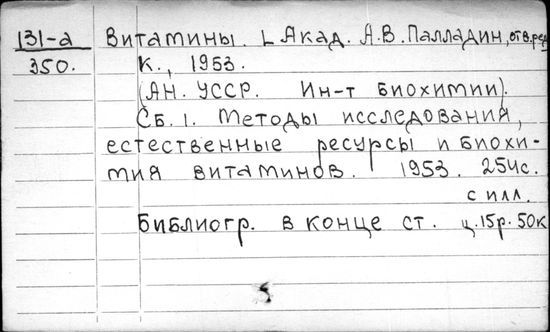 131-а Витамины. [Акад. А.В. Палладин, отв. ред
350. К., 1953.
(АН. УССР. Ин-т биохимии).
Сб. 1. Методы исследования,
естественные ресурсы и биохи-
мия витаминов. 1953. 254с.
с илл.
Библиогр. в конце ст. ц. 15р. 50к